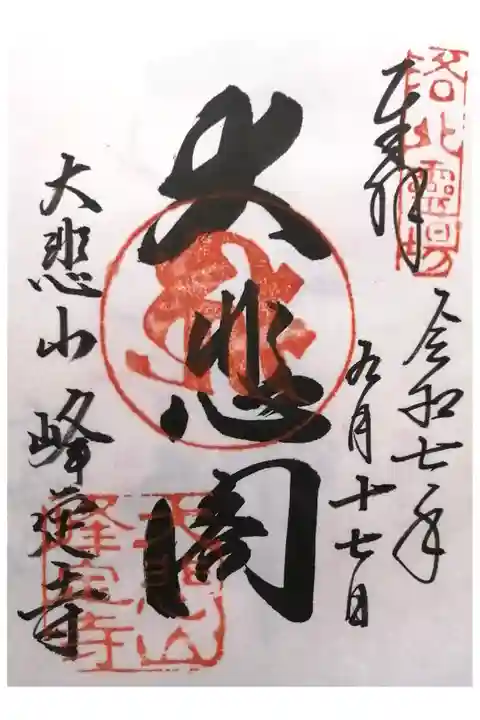 奉拝
洛北霊場
令和七年
五月十七日
大悲閣
大悲山 峰定寺
大悲山
峰定寺